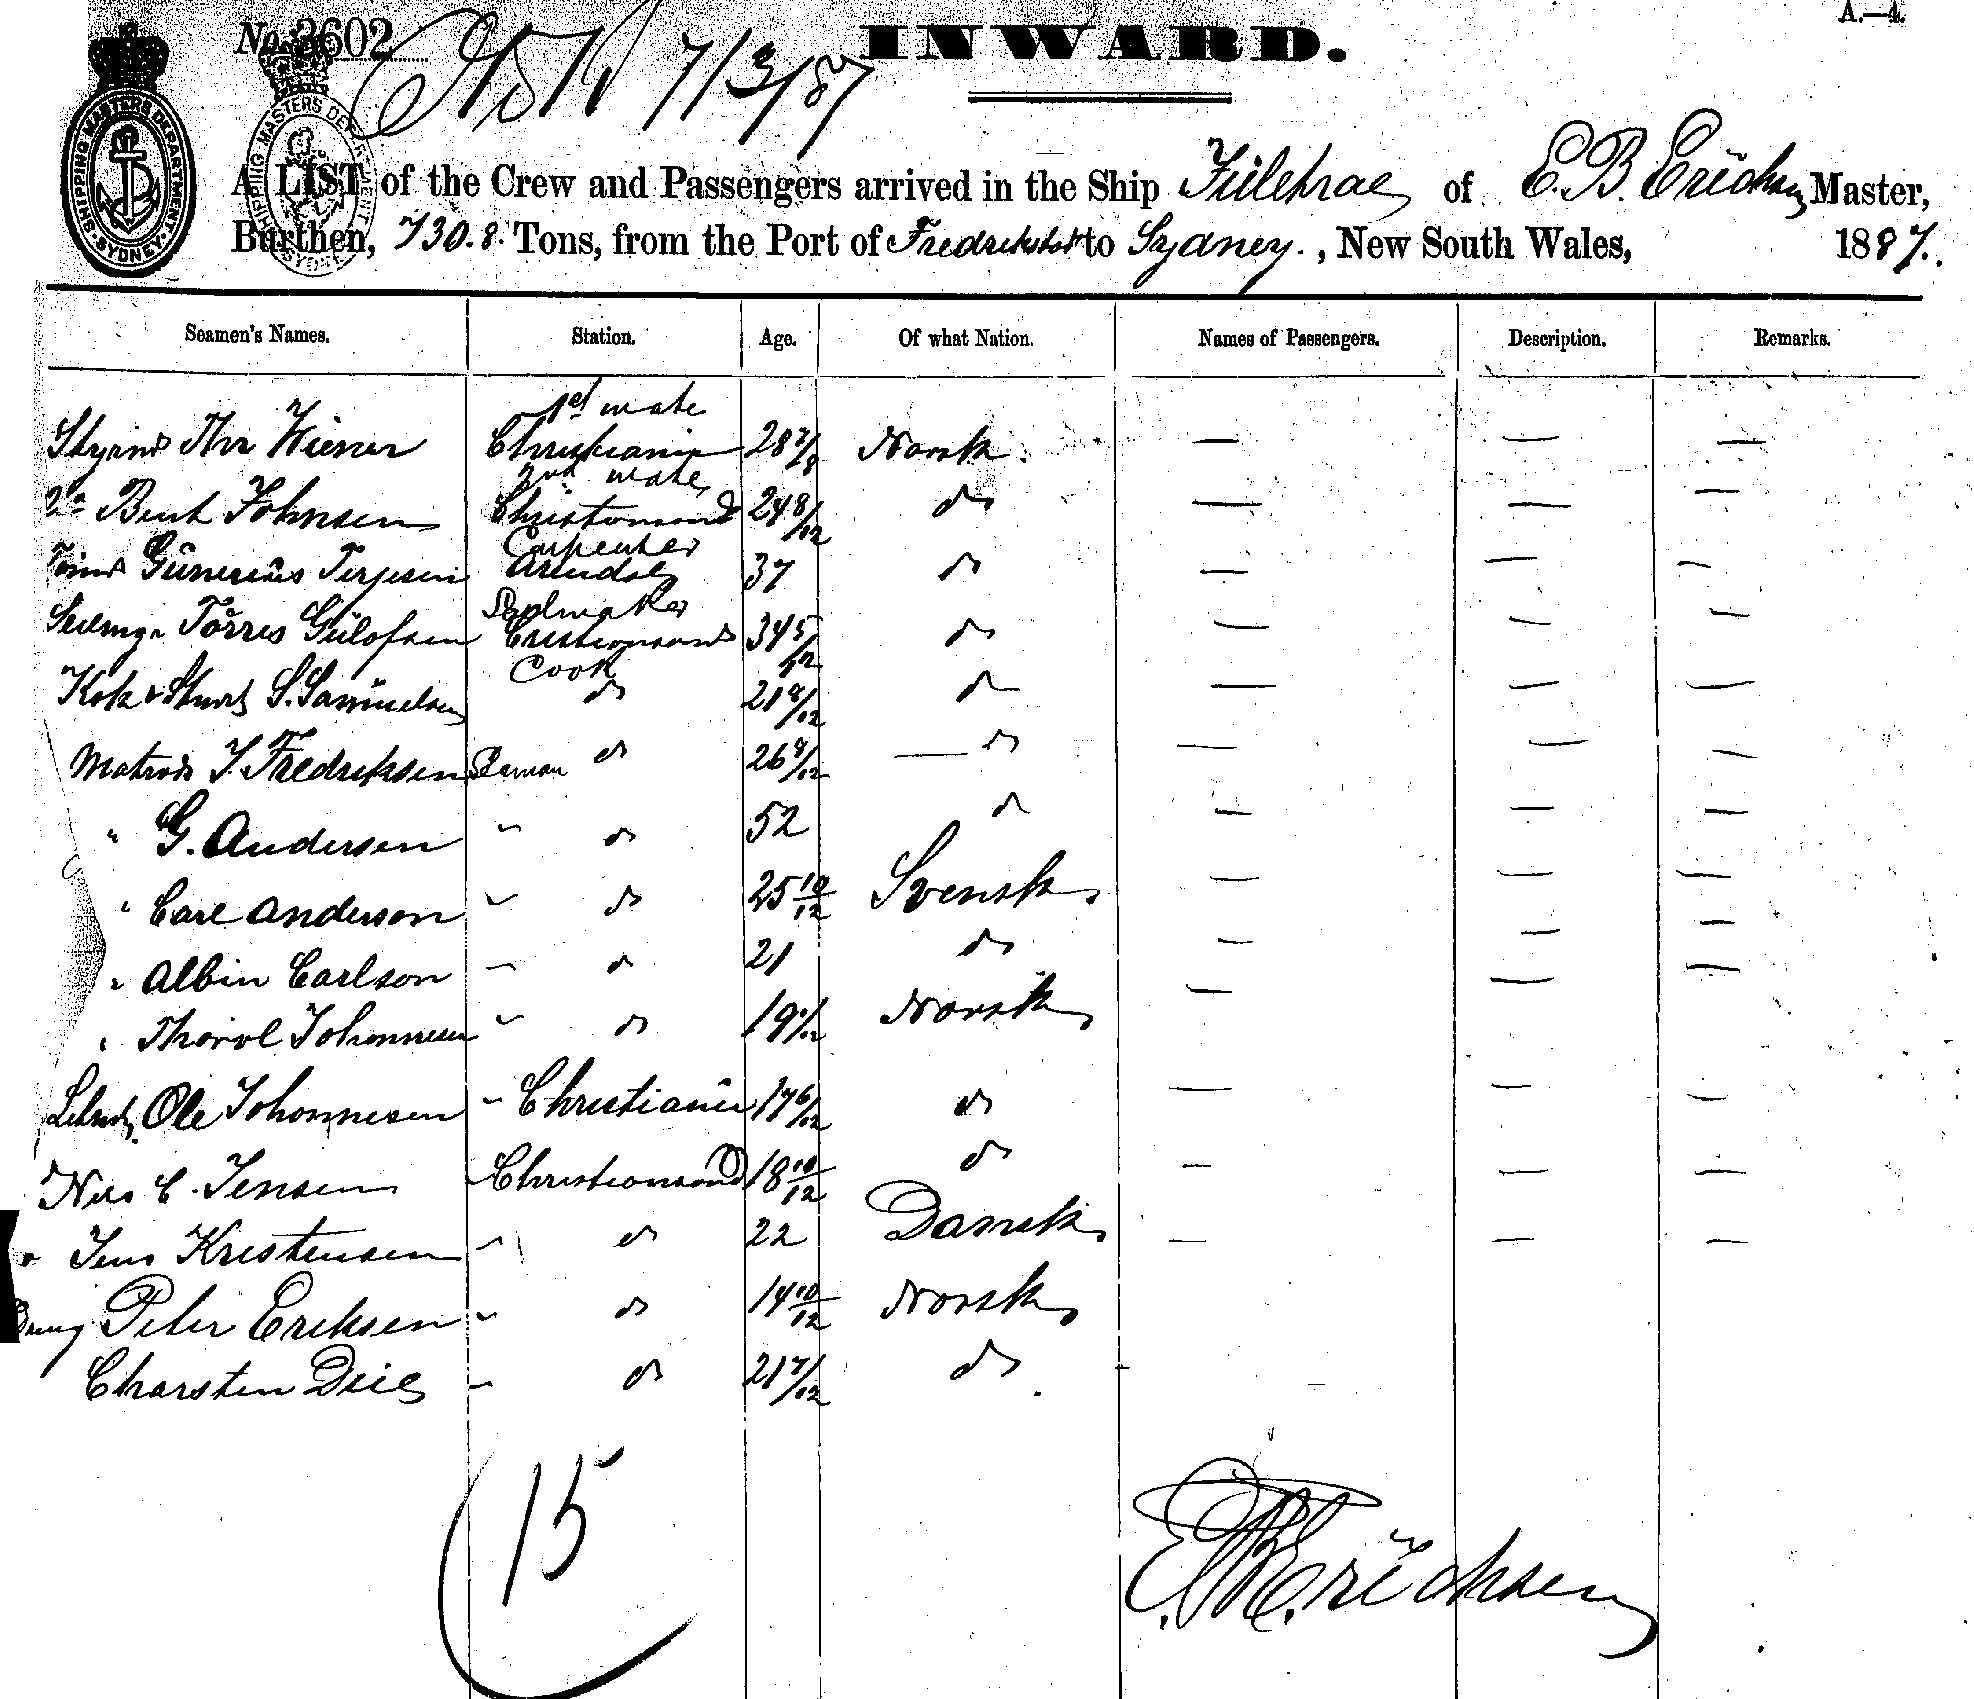 A.—4.
No. 3602
7/3/87
INWARD.
SHIPPING MASTERS DEPARTMENT SYDNEY
A LIST of the Crew and Passengers arrived in the Ship of E. B. Erichsen Master,
Burthen, 730.8. Tons, from the Port of Fredrikstad to Sydney. , New South Wales, 1887.
Seamen's Names. Station. Age. Of what Nation. Names of Passengers. Description. Remarks.
1st mate
Wiener Christiania 28 Norsk. — — —
2nd mate
Bent Johnsen Christiansand 24 8/12 do — — —
Carpenter
Günerius Terjesen Arendal 37 do — — —
Saylmaker
Torres Gülofsen Cristiansand 34 5/12 do — — —
Cook
Kok & S. Samuelsen do 21 do — — —
Matros J. Fredriksen Seaman do 26 — do — — —
" G. Andersen " do 52 do — — —
" Carl Anderson " do 25 10/12 Svensk — — —
" Albin Carlson " do 21 do — — —
" Thorvl Johannesen " do 19 Norsk — — —
Ole Johannesen " Christiania 17 6/12 do — — —
Nils C. Jensen " Christiansand 18 10/12 do — — —
Jens Kristensen " do 22 Dansk — — —
Peter Eriksen " do 14 10/12 Norsk
Charsten " do 21 7/12 do
15
E. B. Erichsen